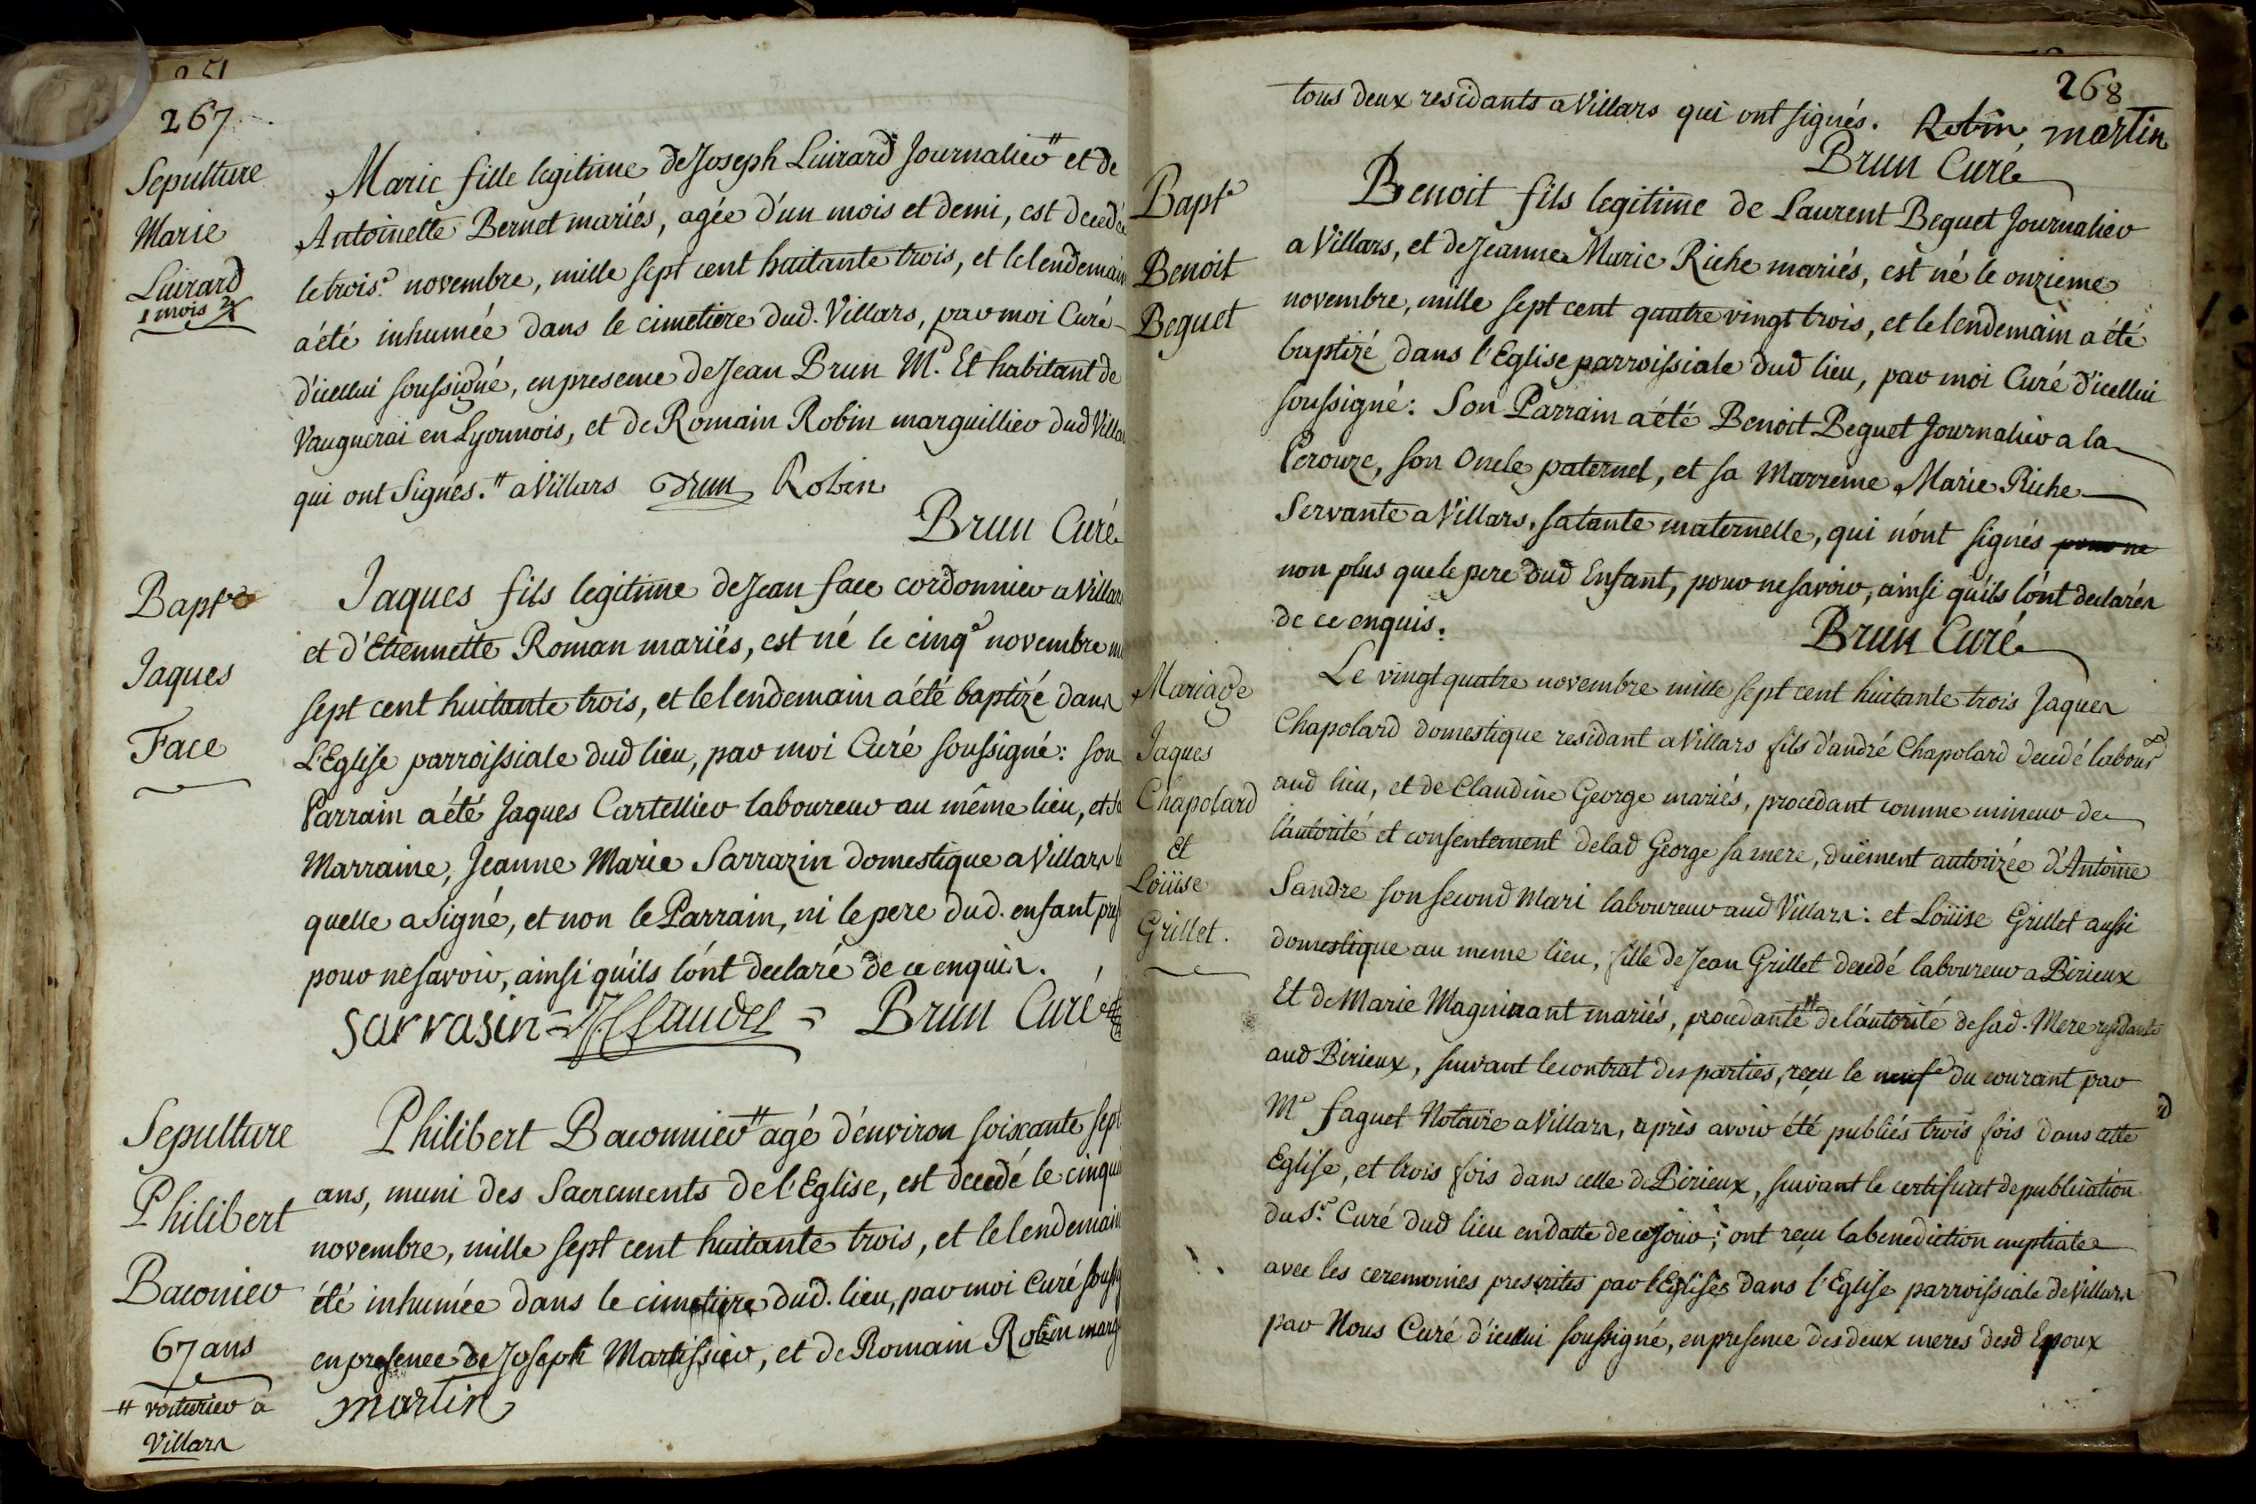 251
267
Sepulture
Marie
Luirard
1 mois ½
Marie fille legitime de Joseph Luirard Journalier # et de
Antoinette Bernet mariés, agée d'un mois et demi, est decedée
le trois.e novembre, mille sept cent huitante trois, et le lendemain
a été inhumée dans le cimetiere dud. Villars, par moi Curé
d'icellui soussigné, en presence de Jean Brun M.d Et habitant de
Vaugnerai en Lyonnois, et de Romain Robin marguillier dud Villa
qui ont Signés. # a Villars Brun Robin
Brun Curé
Bapt.e
Jaques
Face
Jaques fils legitime de Jean face cordonnier a Villars
et d'Etiennette Roman mariés, est né le cinq.e novembre m
sept cent huitante trois, et le lendemain a été baptizé dans
L'Eglise parroissiale dud lieu, par moi Curé soussigné: son
Parrain a été Jaques Cartellier laboureur au même lieu, et sa
Marraine, Jeanne Marie Sarrazin domestique a Villars la
quelle a signé, et non le Parrain, ni le pere dud. enfant pres
pour ne savoir, ainsi qu'ils l'ont declaré de ce enquis.
Sarrasin = = Brun Curé
Sepulture
Philibert
Baconier
67 ans
# voiturier a
Villars
Philibert Baconnier # agé d'environ soiscante sept
ans, muni des Sacrements de l'Eglise, est decedé le cinqui
novembre, mille sept cent huitante trois, et le lendemain
été inhumée dans le cimetiere dud. lieu, par moi Curé soussig
en presence de Joseph Martissier, et de Romain Robin marg
martin
268
tous deux residants a Villars qui ont signés. Robin, martin
Brun Curé
Bapt.e
Benoit
Beguet
Benoit fils legitime de Laurent Beguet Journalier
a Villars, et de Jeanne Marie Riche mariés, est né le onzieme
novembre, mille sept cent quatre vingt trois, et le lendemain a été
baptizé dans l'Eglise parroissiale dud lieu, par moi Curé d'icellui
soussigné: Son Parrain a été Benoit Beguet Journalier a la
Perouze, son Oncle paternel, et sa Marreine Marie Riche
Servante a Villars, sa tante maternelle, qui n'ont signés pour ne
non plus que le pere dud Enfant, pour ne savoir, ainsi qu'ils l'ont declarés
de ce enquis.
Brun Curé
Mariage
Jaques
Chapolard
et
Loüise
Grillet.
Le vingt quatre novembre mille sept cent huitante trois Jaques
Chapolard domestique residant a Villars fils d'andré Chapolard decedé labour
aud lieu, et de Claudine George mariés, procedant comme mineur de
l'autorité et consentement de lad George sa mere, duëment autorizée d'Antoine
Sandre son second Mari laboureur aud Villars: et Loüise Grillet aussi
domestique au meme lieu, fille de Jean Grillet decedé laboureur a Birieux
Et de Marie Magninant mariés, procedante # de l'autorité de sad. Mere residante
aud Birieux, suivant le contrat des parties, reçu le neuf.e du courant par
M.e faguet Notaire a Villars, après avoir été publiés trois fois dans cette
Eglise, et trois fois dans celle de Birieux, suivant le certificat de publication
du S.r Curé dud lieu en datte de ce jour; ont reçu la benediction nuptiale
avec les ceremonies prescrites par l'Eglise dans l'Eglise parroissiale de Villars
par Nous Curé d'icellui soussigné, en presence des deux meres desd Epoux